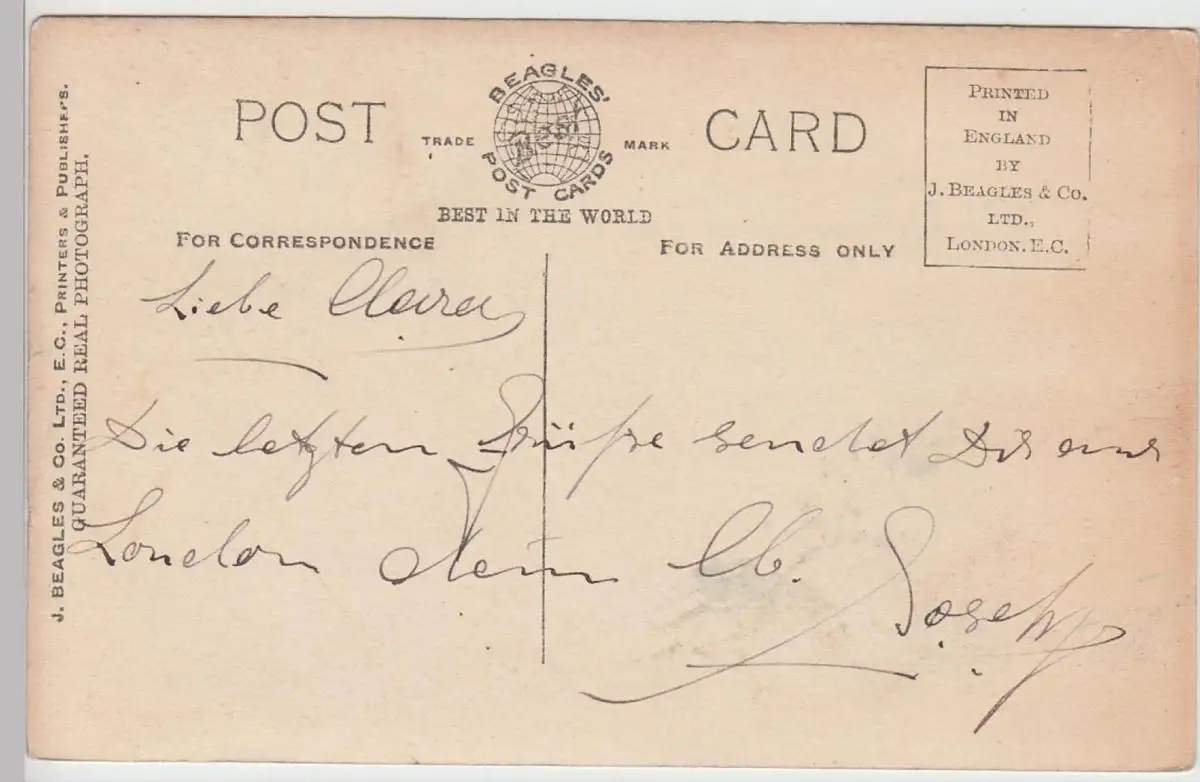 POST CARD
BEAGLES'
POST CARDS
TRADE MARK
BEST IN THE WORLD
FOR CORRESPONDENCE
FOR ADDRESS ONLY
PRINTED
IN
ENGLAND
BY
J. BEAGLES & CO.
LTD.,
LONDON. E.C.
J. BEAGLES & Co. LTD., E.C., PRINTERS & PUBLISHERS.
GUARANTEED REAL PHOTOGRAPH.
Liebe Clara
Die letzten Grüße sendet Dir aus
London dein lb. Joseph